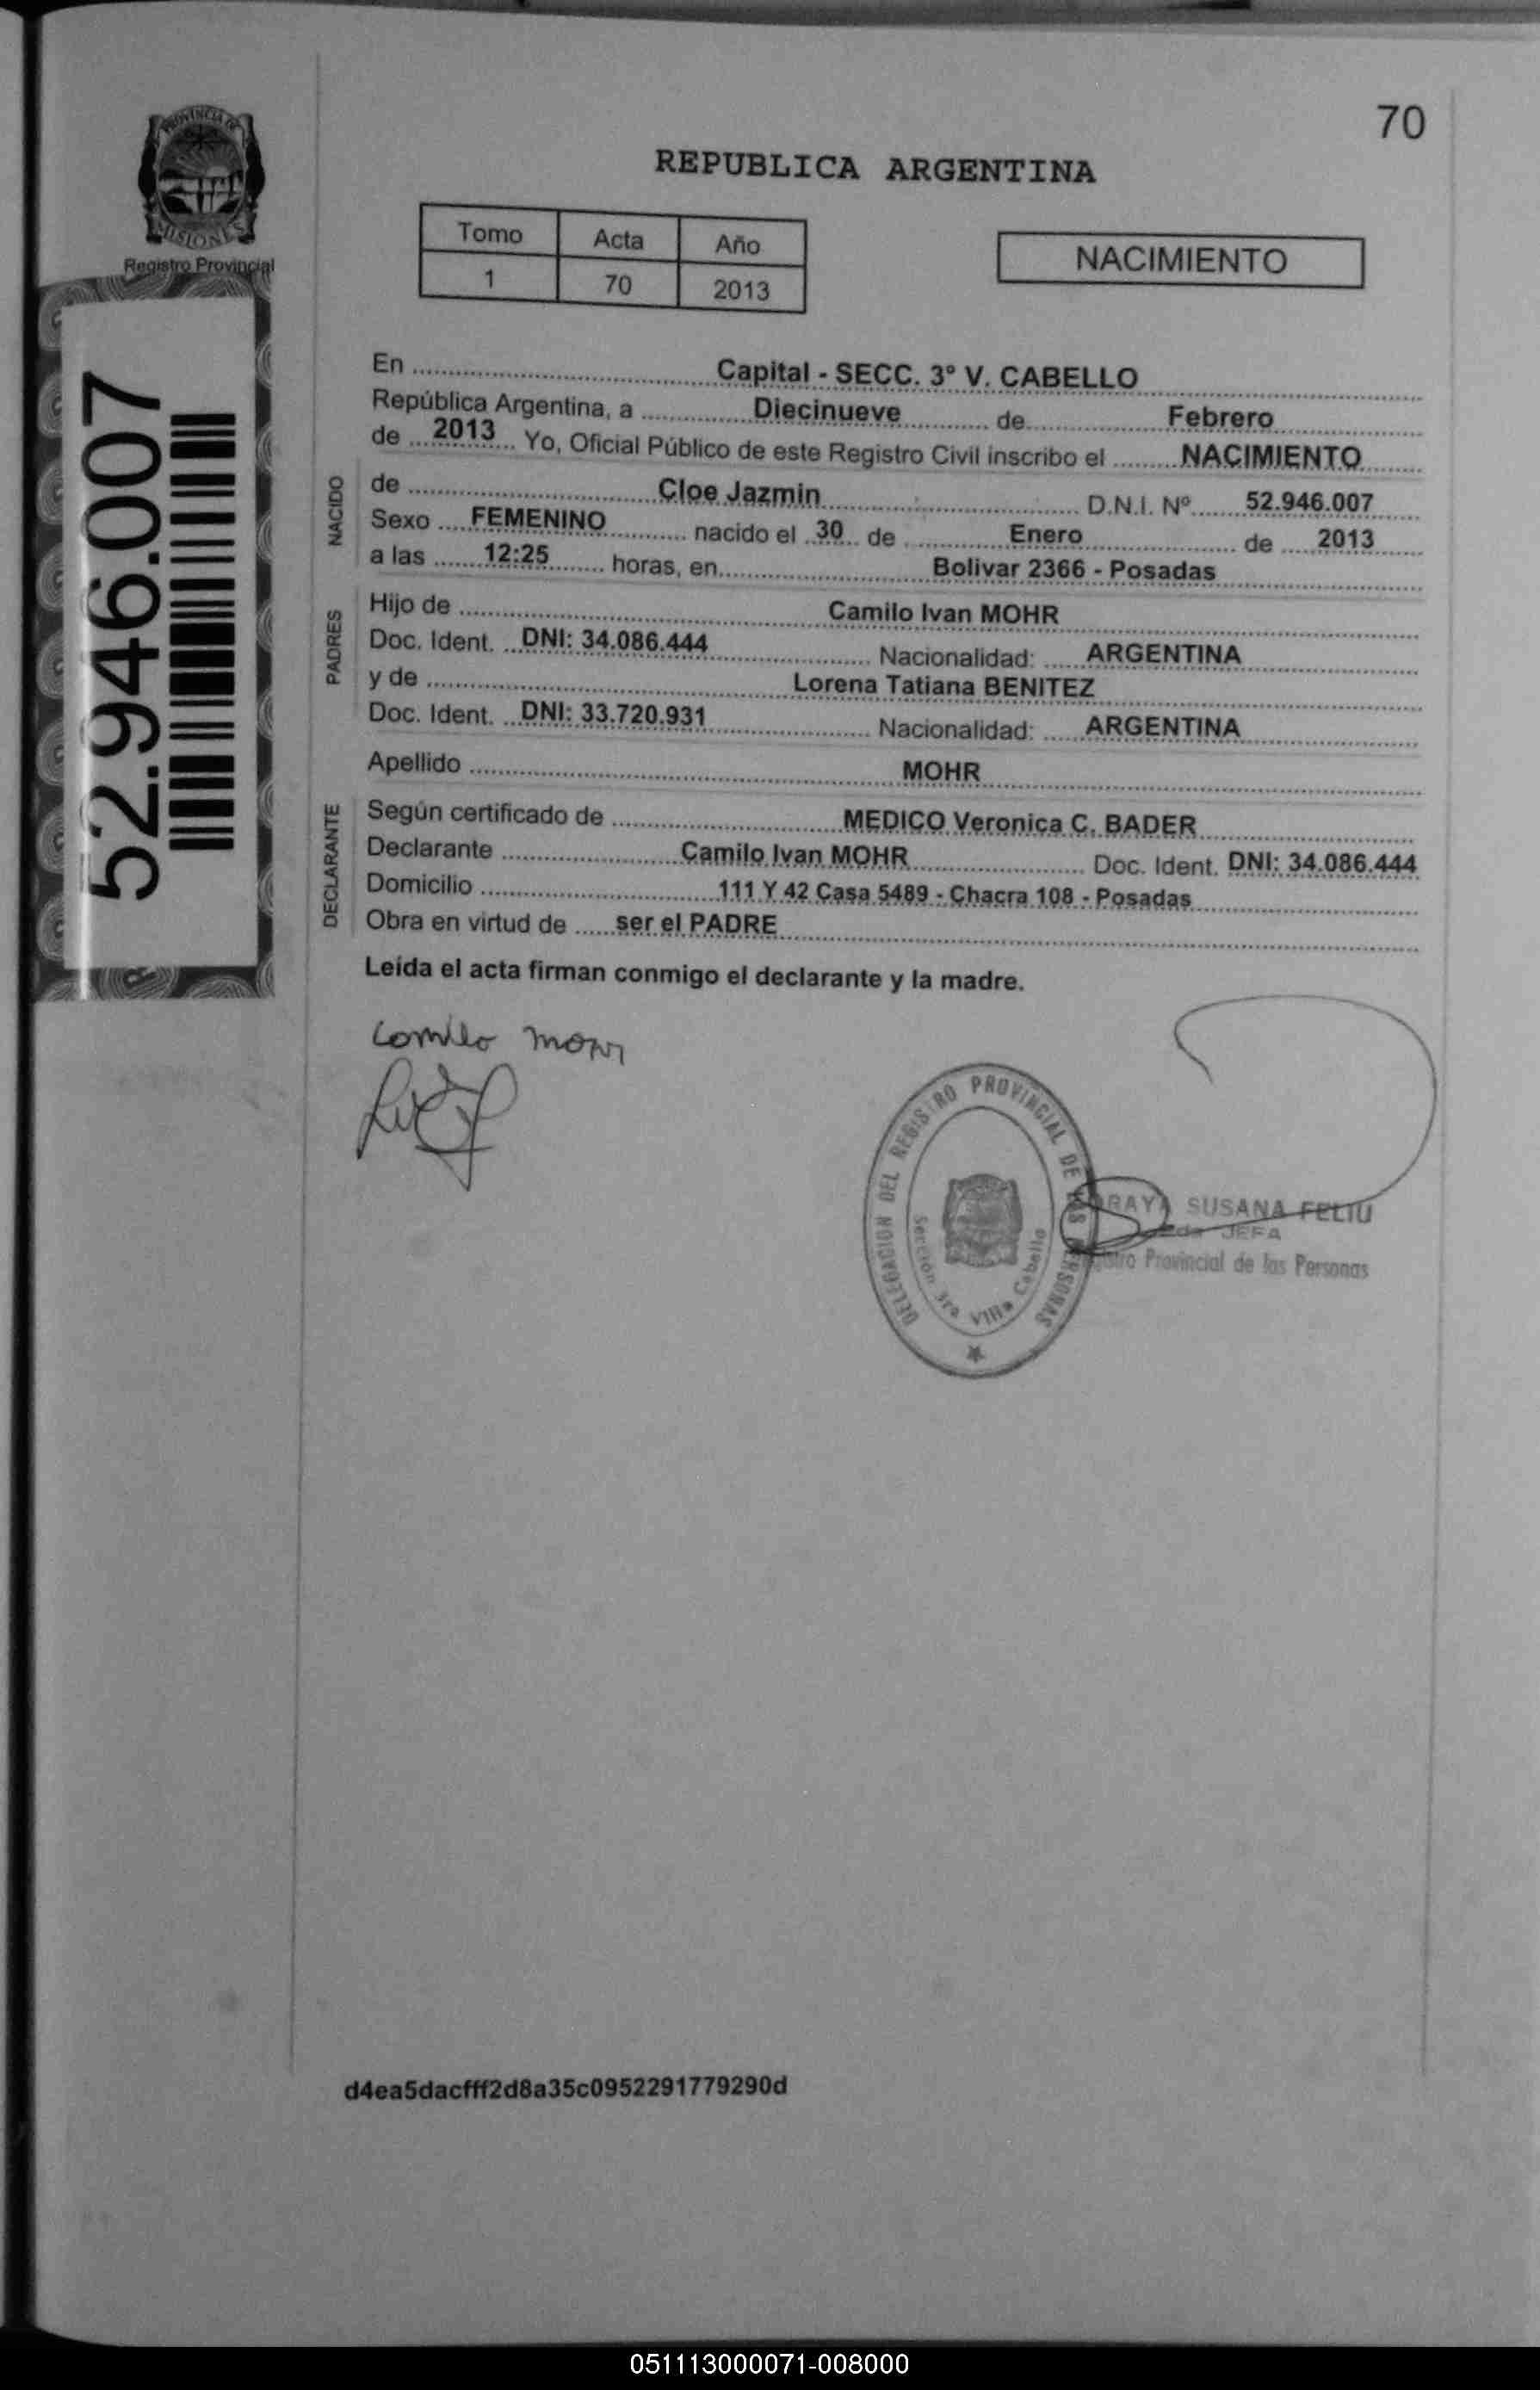 70
PROVINCIA DE
MISIONES
Registro Provincial
52.946.007
REPUBLICA ARGENTINA
Tomo Acta Año
1 70 2013
NACIMIENTO
En Capital - SECC. 3° V. CABELLO
República Argentina, a Diecinueve de Febrero
de 2013 Yo, Oficial Público de este Registro Civil inscribo el NACIMIENTO
NACIDO
de Cloe Jazmin D.N.I. Nº 52.946.007
Sexo FEMENINO nacido el 30 de Enero de 2013
a las 12:25 horas, en Bolivar 2366 - Posadas
PADRES
Hijo de Camilo Ivan MOHR
Doc. Ident. DNI: 34.086.444 Nacionalidad: ARGENTINA
y de Lorena Tatiana BENITEZ
Doc. Ident. DNI: 33.720.931 Nacionalidad: ARGENTINA
Apellido MOHR
DECLARANTE
Según certificado de MEDICO Veronica C. BADER
Declarante Camilo Ivan MOHR Doc. Ident. DNI: 34.086.444
Domicilio 111 Y 42 Casa 5489 - Chacra 108 - Posadas
Obra en virtud de ser el PADRE
Leída el acta firman conmigo el declarante y la madre.
Camilo Mohr
DELEGACION DEL REGISTRO PROVINCIAL DE LAS PERSONAS
Sección 3ra Villa Cabello
SUSANA FELIU
JEFA
Provincial de las Personas
d4ea5dacfff2d8a35c0952291779290d
051113000071-008000